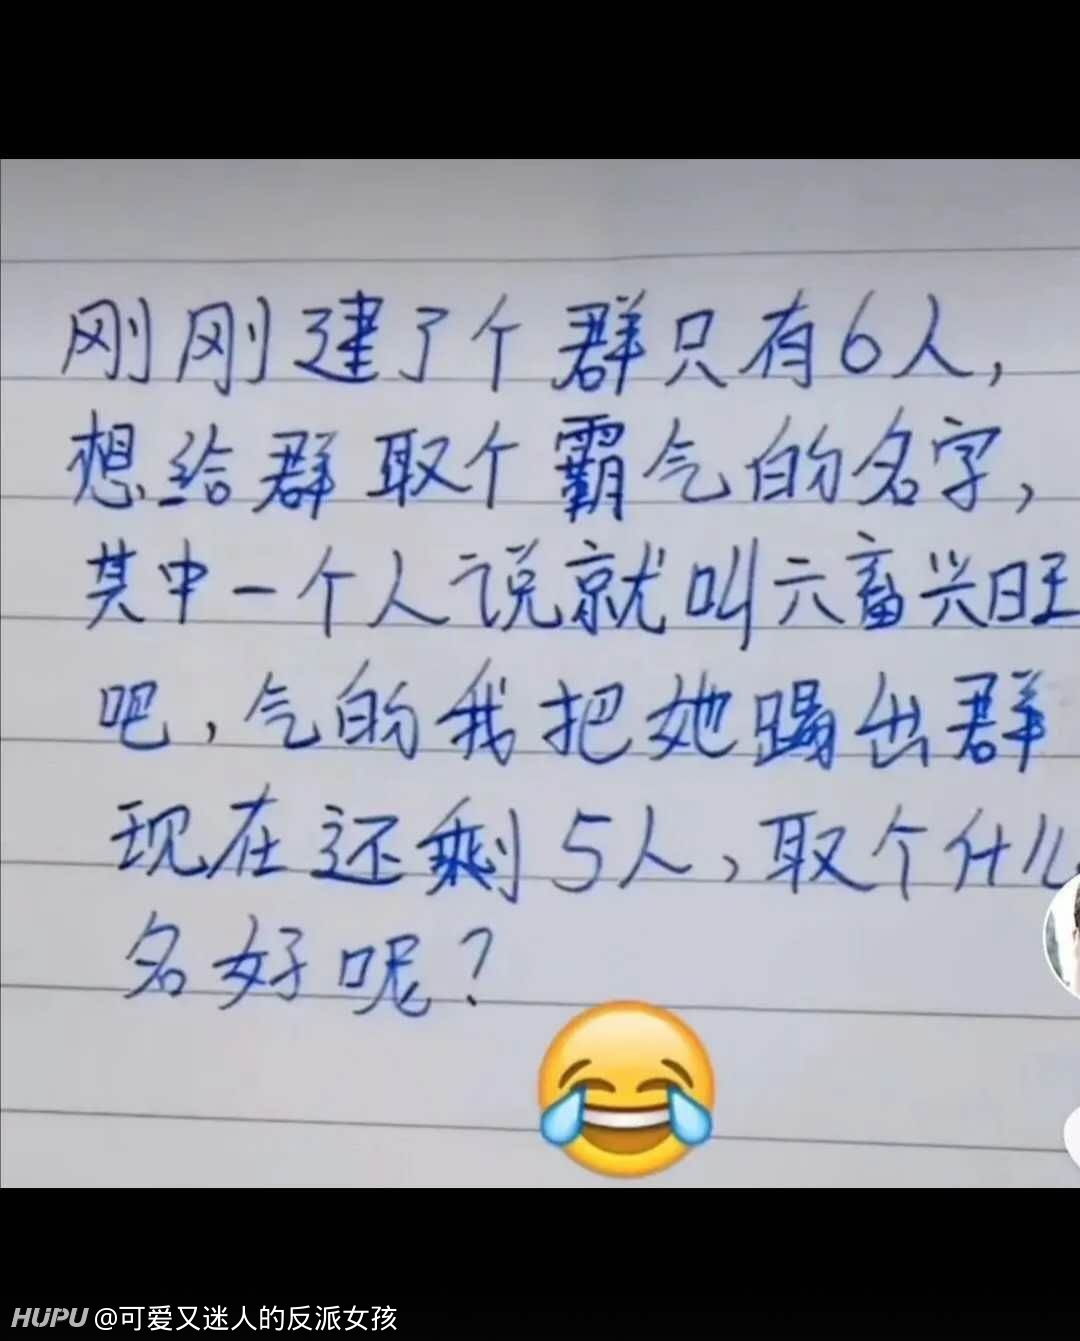 刚刚建了个群只有6人,
想给群取个霸气的名字,
其中一个人说就叫六畜兴旺
吧,气的我把她踢出群
现在还剩5人,取个什么
名好呢?
HUPU @可爱又迷人的反派女孩